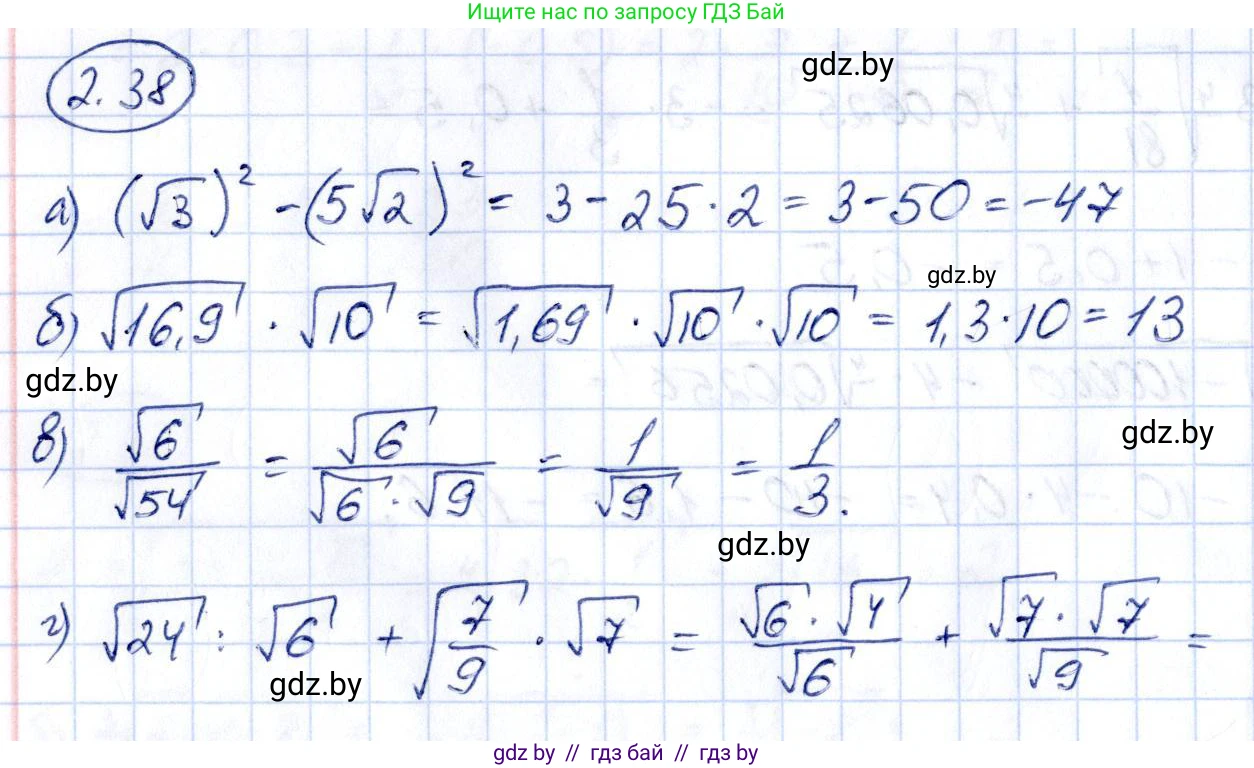 Ищите нас по запросу ГДЗ Бай
2.38
gdz.by
а) (√3)² - (5√2)² = 3 - 25·2 = 3 - 50 = -47
gdz.by
б) √16,9 · √10 = √1,69 · √10 · √10 = 1,3·10 = 13
gdz.by
gdz.by
в) √6/√54 = √6/(√6·√9) = 1/√9 = 1/3.
gdz.by
г) √24 : √6 + √(7/9) · √7 = (√6·√4)/√6 + (√7·√7)/√9 =
gdz.by
gdz by // гдз бай // гдз by